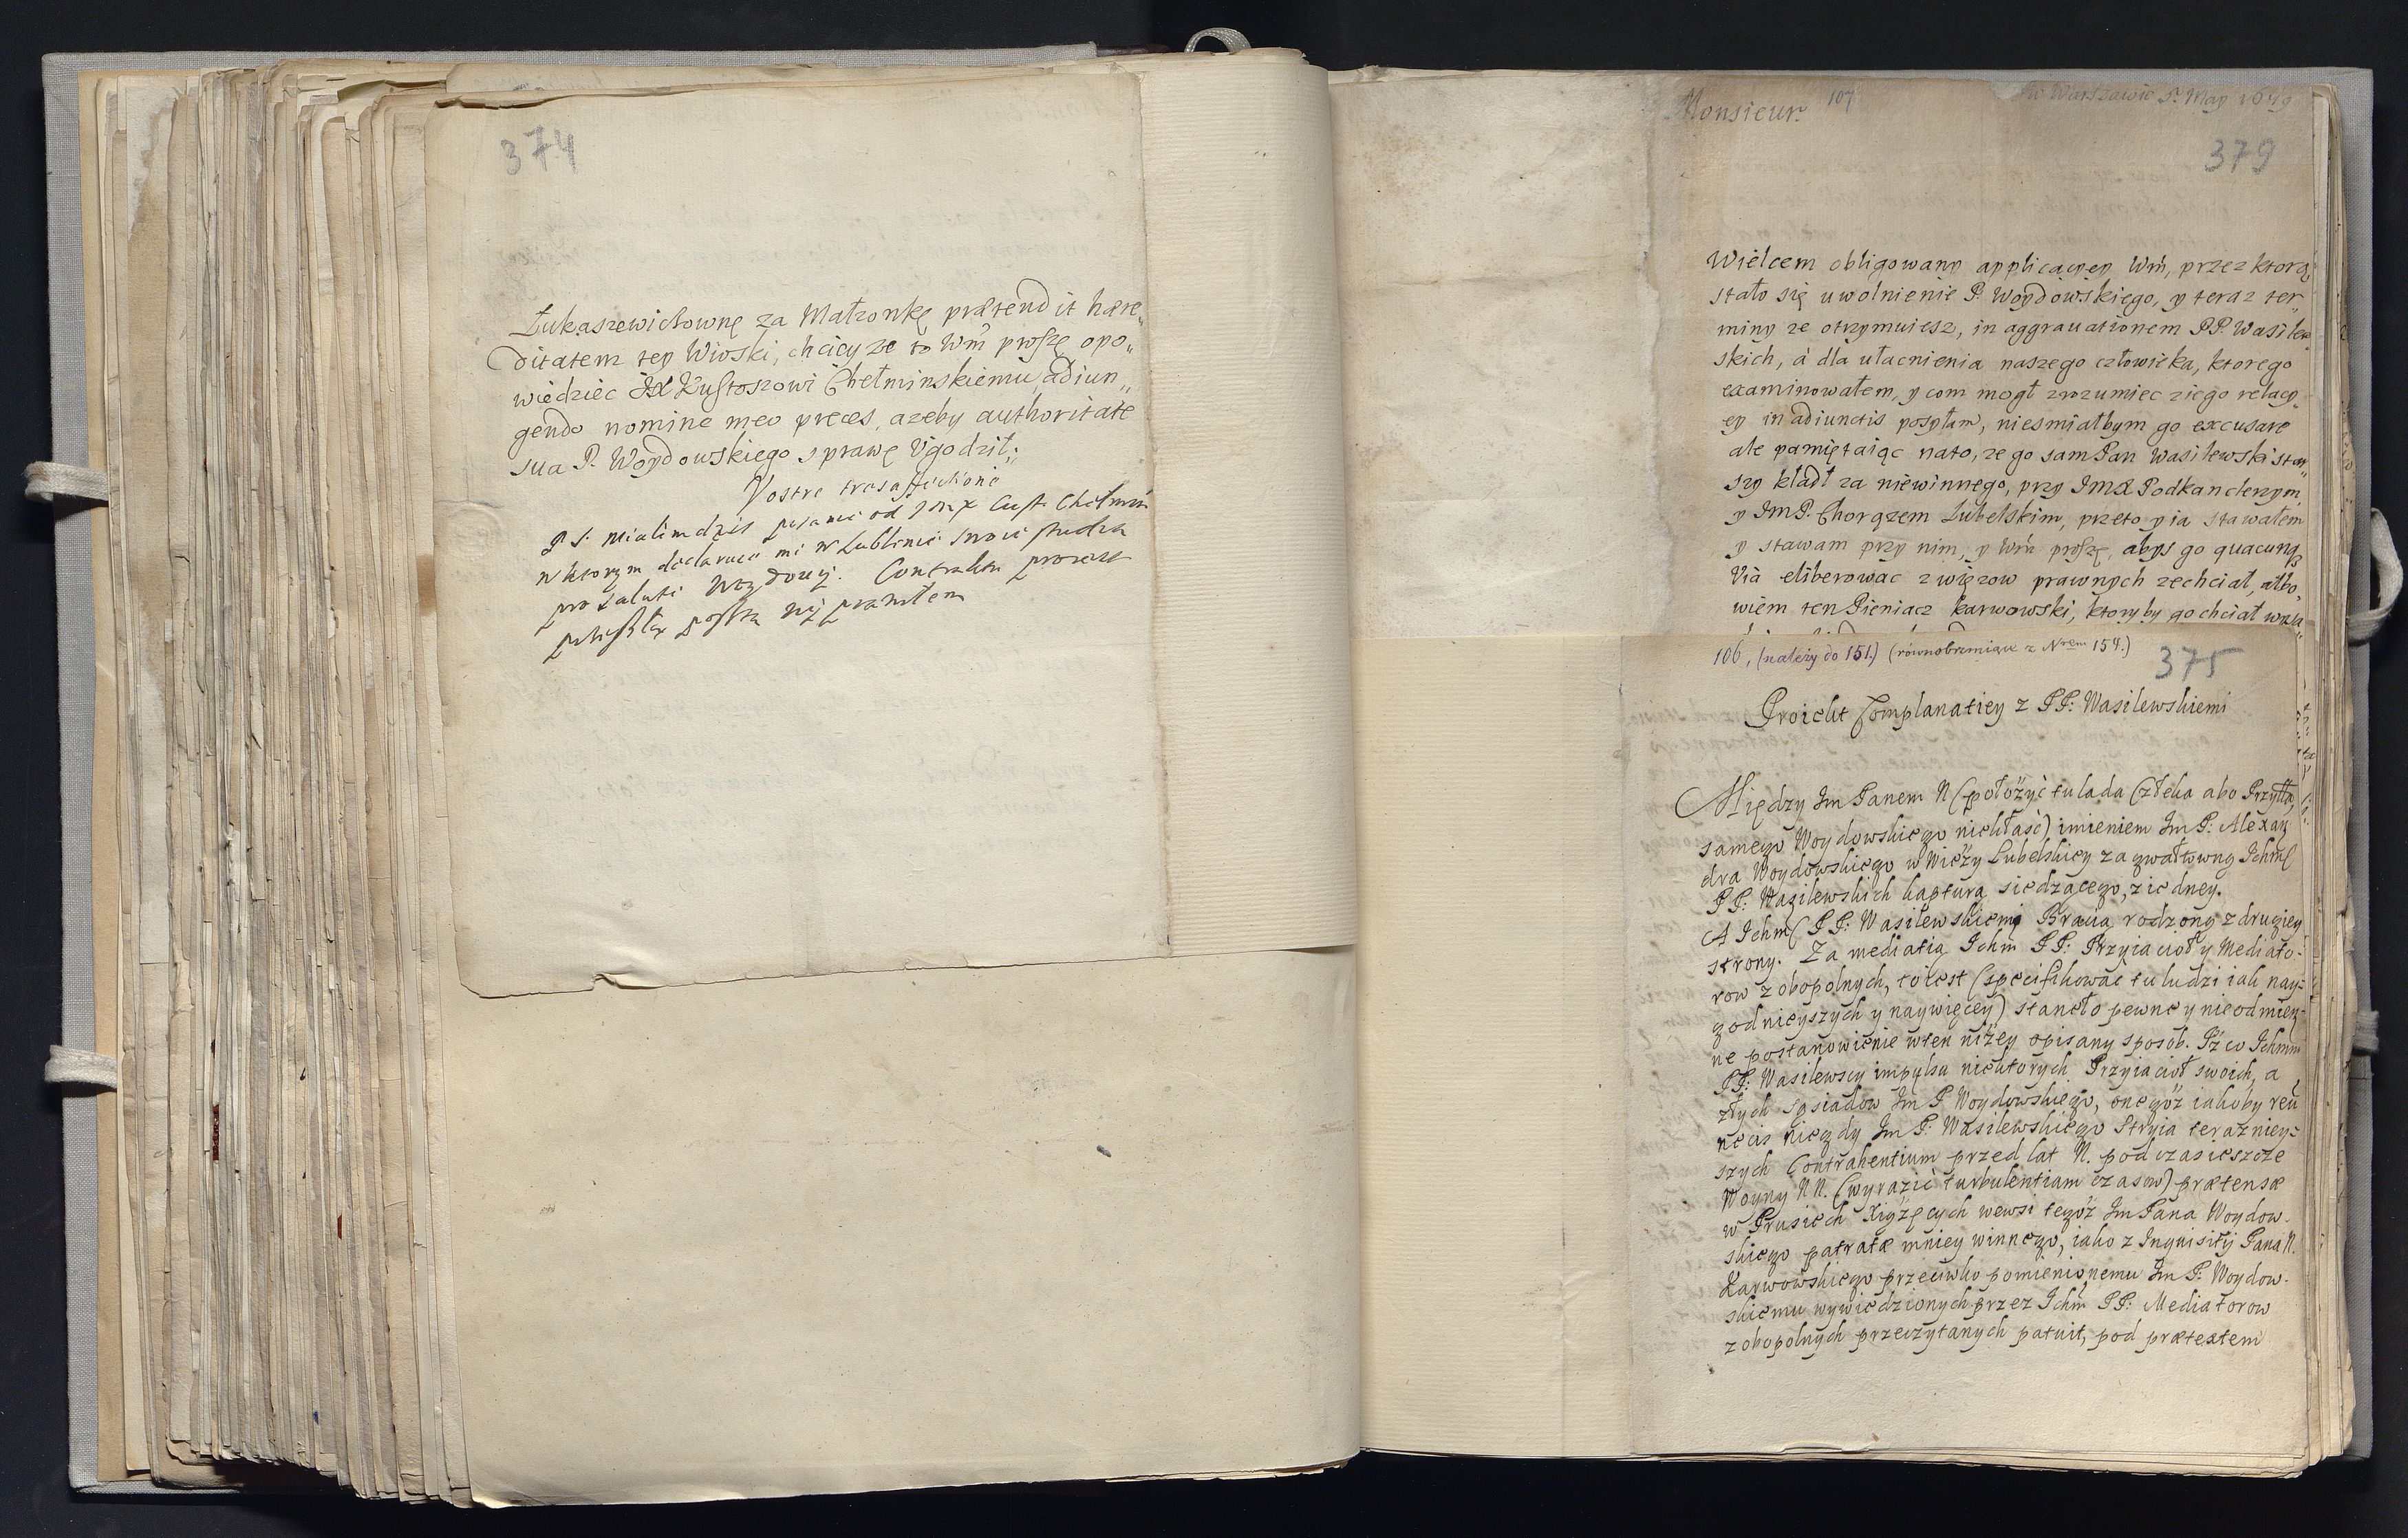 374
Łukaszewiczownę za Małzonkę prætendit hære„
ditatem tey Wioski, chcicy ze to Wm̃ proszę opo„
wiedziec JX Kustoszowi Chełminskiemu, adiun„
gendo nomine meo preces, azeby authoritate
sua P. Woydowskiego sprawę Vgodził;
Vostre tresaffectioné
PS. Mialem dzis pisanie od JMX Cust. Chełmin
w ktorym declaruie mi w Lublinie swoie studia
pro salute Woydowij. Contraktu
poszta
Monsieur. 107
w Warszawie 5. May 1679
379
Wielcem obligowany applicacyey Wm̃, przez ktorą
stało się uwolnienie P. Woydowskiego, y teraz ter„
miny ze otrzymuiesz, in aggrauationem PP. Wasilew„
skich, à dla ułacnienia naszego człowieka, ktorego
examinowałem, y com mogł zrozumiec z iego relacy„
ey in adiunctis posyłam, niesmiałbym go excusare
ale pamiętaiąc nato, ze go sam Pan Wasilewski star„
szy kładł za niewinnego, przy JMX Podkanclerzym,
y JmP. Chorązem Lubelskim, przeto y ia stawałem
y stawam przy nim, y Wm̃ proszę, abys go quacunq
Via eliberowac z więzow prawnych zechciał, albo„
wiem ten Pieniacz Karwowski, ktoryby go chciał
106, (należy do 151.) (równobrzmiące z Nrem 154.)
375
Proiekt Complanatiey z PP: Wasilewskiemi
Między Jm Panem N (położyć tu lada Człeka abo Przyłła,
samego Woydowskiego niekłaść) imieniem Jm P: Alexan
dra Woydowskiego w Wieży Lubelskiey za gwałtowną Ichm
PP: Wasilewskich kapturą siedzącego, z iedney.
A Ichm PP: Wasilewskiemi Bracią rodzoną z drugiey
strony. Za mediatią Ichm PP: Przyiacioł y Mediato-
row z obopolnych, to iest (specifikować tu ludzi iak nay-
godnieyszych y naywięcey) staneło pewne y nieodmien-
ne postanowienie w ten niżey opisany sposob. Iż co Ichmm
PP: Wasilewscy impulsu niektorych Przyiacioł swoich, a
złych sąsiadow Jm P Woydowskiego, onegoż iakoby reũ
necis niegdy Jm P: Wasilewskiego Stryia teraznieý-
szych Contrahentium przed lat N. pod czas ieszcze
Woyny NN. (wyrazić turbulentiam czasow) prætensæ
w Prusiech Xiążęcych we wsi tegoż Jm Pana Woydow-
skiego patratæ mniey winnego, iako z Inquisitij Pana N.
Karwowskiego przeciwko pomienionemu Jm P: Woydow-
skiemu wywiedzionych przez Ichm̃ PP: Mediatorow
z obopolnych przeczytanych patuit, pod prætextem